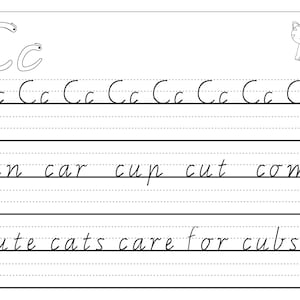 Cc
c Cc Cc Cc Cc Cc Cc C
an car cup cut com
ute cats care for cubs